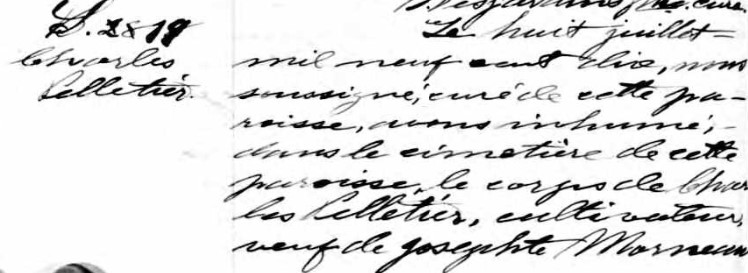 Desjardins, ptre. curé
S. 28 19
Charles
Pelletier.
Le huit juillet
mil neuf cent dix, nous
soussigné, curé de cette pa-
roisse, avons inhumé,
dans le cimetière de cette
paroisse, le corps de Char
les Pelletier, cultivateur,
veuf de Josephte Morneau